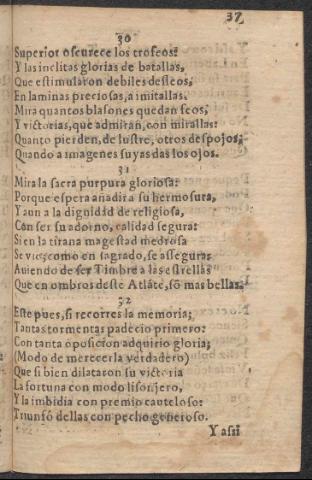 37
30
Superior oscurece los trofeos:
Y las inclitas glorias de batallas,
Que estimularon debiles desseos,
En laminas preciosas, a imitallas.
Mira quantos blasones quedan feos,
Y victorias, que admiran, con mirallas:
Quanto pierden, de lustre, otros despojos,
Quando a imagenes suyas das los ojos.
31
Mira la sacra purpura gloriosa:
Porque espera añadir a su hermosura,
Y aun a la dignidad de religiosa,
Con ser su adorno, calidad segura:
Si en la tirana magestad medrosa
Se vie, como en sagrado, se assegura:
Auiendo de ser Timbre a las estrellas
Que en ombros deste Atláte, sō mas bellas.
32
Este pues, si recorres la memoria;
Tantas tormentas padecio primero:
Con tanta oposicion adquirio gloria;
(Modo de merecerla verdadero)
Que si bien dilataron su victoria
La fortuna con modo lisonjero,
Y la imbidia con premio cauteloso:
Triunfó dellas con pecho generoso.
Y assi